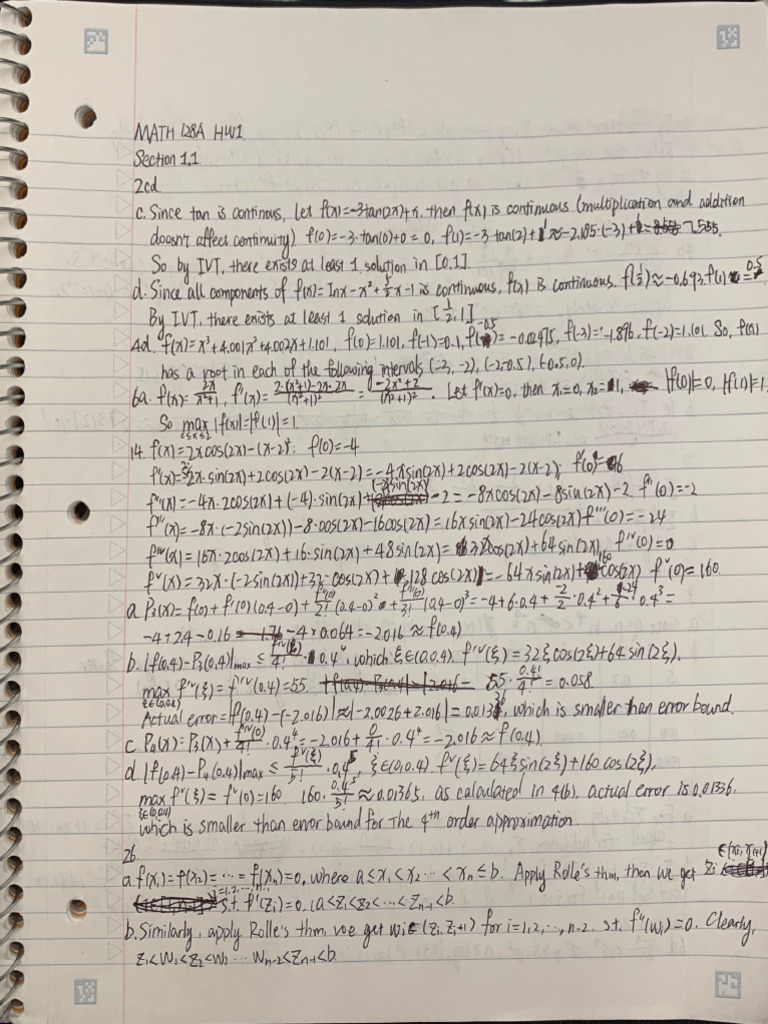 MATH 128A HW1
Section 1.1
2cd
c. Since tan is continous, let f(x)=-3tan(2x)+x, then f(x) is continuous (multiplication and addition
doesn't affect continuity) f(0)=-3·tan(0)+0=0, f(1)=-3·tan(2)+1≈-2.185·(-3)+1=7.555.
So by IVT, there exists at least 1 solution in [0,1].
d. Since all components of f(x)=lnx-x²+5/2x-1 is continuous, f(x) is continuous. f(1/2)≈-0.693, f(1)=0.5
By IVT, there exists at least 1 solution in [1/2,1]
4d. f(x)=x³+4.001x²+4.002x+1.101, f(0)=1.101, f(-1)=0.1, f(-0.5)=-0.02475, f(-3)=-1.896, f(-2)=1.101. So, f(x)
has a root in each of the following intervals (-3,-2), (-2,-0.5), (-0.5,0).
6a. f(x)=2x/x²+1, f'(x)=2·(x²+1)-2x·2x/(x²+1)²=-2x²+2/(x²+1)². Let f'(x)=0, then x₁=0, x₂=1, |f(0)|=0, |f(1)|=1
So max |f(x)|=|f(1)|=1.
14. f(x)=2xcos(2x)-(x-2)², f(0)=-4
f'(x)=-2·2x·sin(2x)+2cos(2x)-2(x-2)=-4xsin(2x)+2cos(2x)-2(x-2), f'(0)=6
f''(x)=-4x·2cos(2x)+(-4)·sin(2x)+(-4)sin(2x)-2=-8xcos(2x)-8sin(2x)-2 f''(0)=-2
f'''(x)=-8x·(-2sin(2x))-8·cos(2x)-16cos(2x)=16xsin(2x)-24cos(2x) f'''(0)=-24
f^IV(x)=16x·2cos(2x)+16·sin(2x)+48sin(2x)=32xcos(2x)+64sin(2x), f^IV(0)=0
f^V(x)=32x·(-2sin(2x))+32·cos(2x)+128cos(2x)=-64xsin(2x)+160cos(2x) f^V(0)=160
a. P₃(x)=f(0)+f'(0)(0.4-0)+f''(0)/2!(0.4-0)²+f'''(0)/3!(0.4-0)³=-4+6·0.4+-2/2·0.4²+-24/6·0.4³=
-4+2.4-0.16-4×0.064=-2.016≈f(0.4)
b. |f(0.4)-P₃(0.4)|max≤f^IV(ξ)/4!·0.4⁴, which ξ∈(0,0.4). f^IV(ξ)=32ξcos(2ξ)+64sin(2ξ).
max f^IV(ξ)=f^IV(0.4)=55. 55·0.4⁴/4!=0.058
ξ∈(0,0.4)
Actual error=|f(0.4)-(-2.016)|≈|-2.0026+2.016|=0.01336, which is smaller than error bound.
c. P₄(x)=P₃(x)+f^IV(0)/4!·0.4⁴=-2.016+0/4!·0.4⁴=-2.016≈f(0.4)
d. |f(0.4)-P₄(0.4)|max≤f^V(ξ)/5!·0.4⁵, ξ∈(0,0.4). f^V(ξ)=64ξsin(2ξ)+160cos(2ξ),
max f^V(ξ)=f^V(0)=160 160·0.4⁵/5!≈0.01365, as calculated in 4(b), actual error is 0.01336,
ξ∈(0,0.4)
which is smaller than error bound for the 4th order approximation.
26.
a. f(x₁)=f(x₂)=···=f(xn)=0, where a≤x₁<x₂···<xn≤b. Apply Rolle's thm, then we get zi ∈(xi,xi+1)
s.t. f'(zi)=0. (a<z₁<z₂<···<zn-1<b.
b. Similarly, apply Rolle's thm, we get wi∈(zi,zi+1) for i=1,2,···,n-2. s.t. f''(wi)=0. Clearly,
z₁<w₁<z₂<w₂···wn-2<zn-1<b